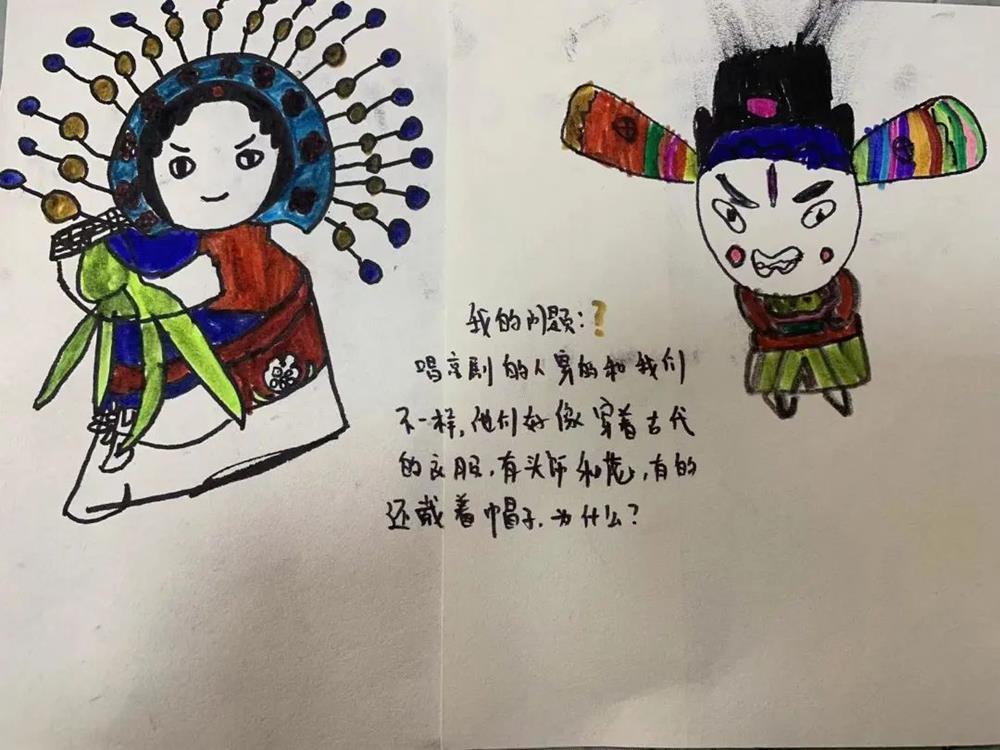 我的问题:?
唱京剧的人穿的和我们
不一样,他们好像穿着古代
的衣服,有头饰和花,有的
还戴着帽子,为什么?